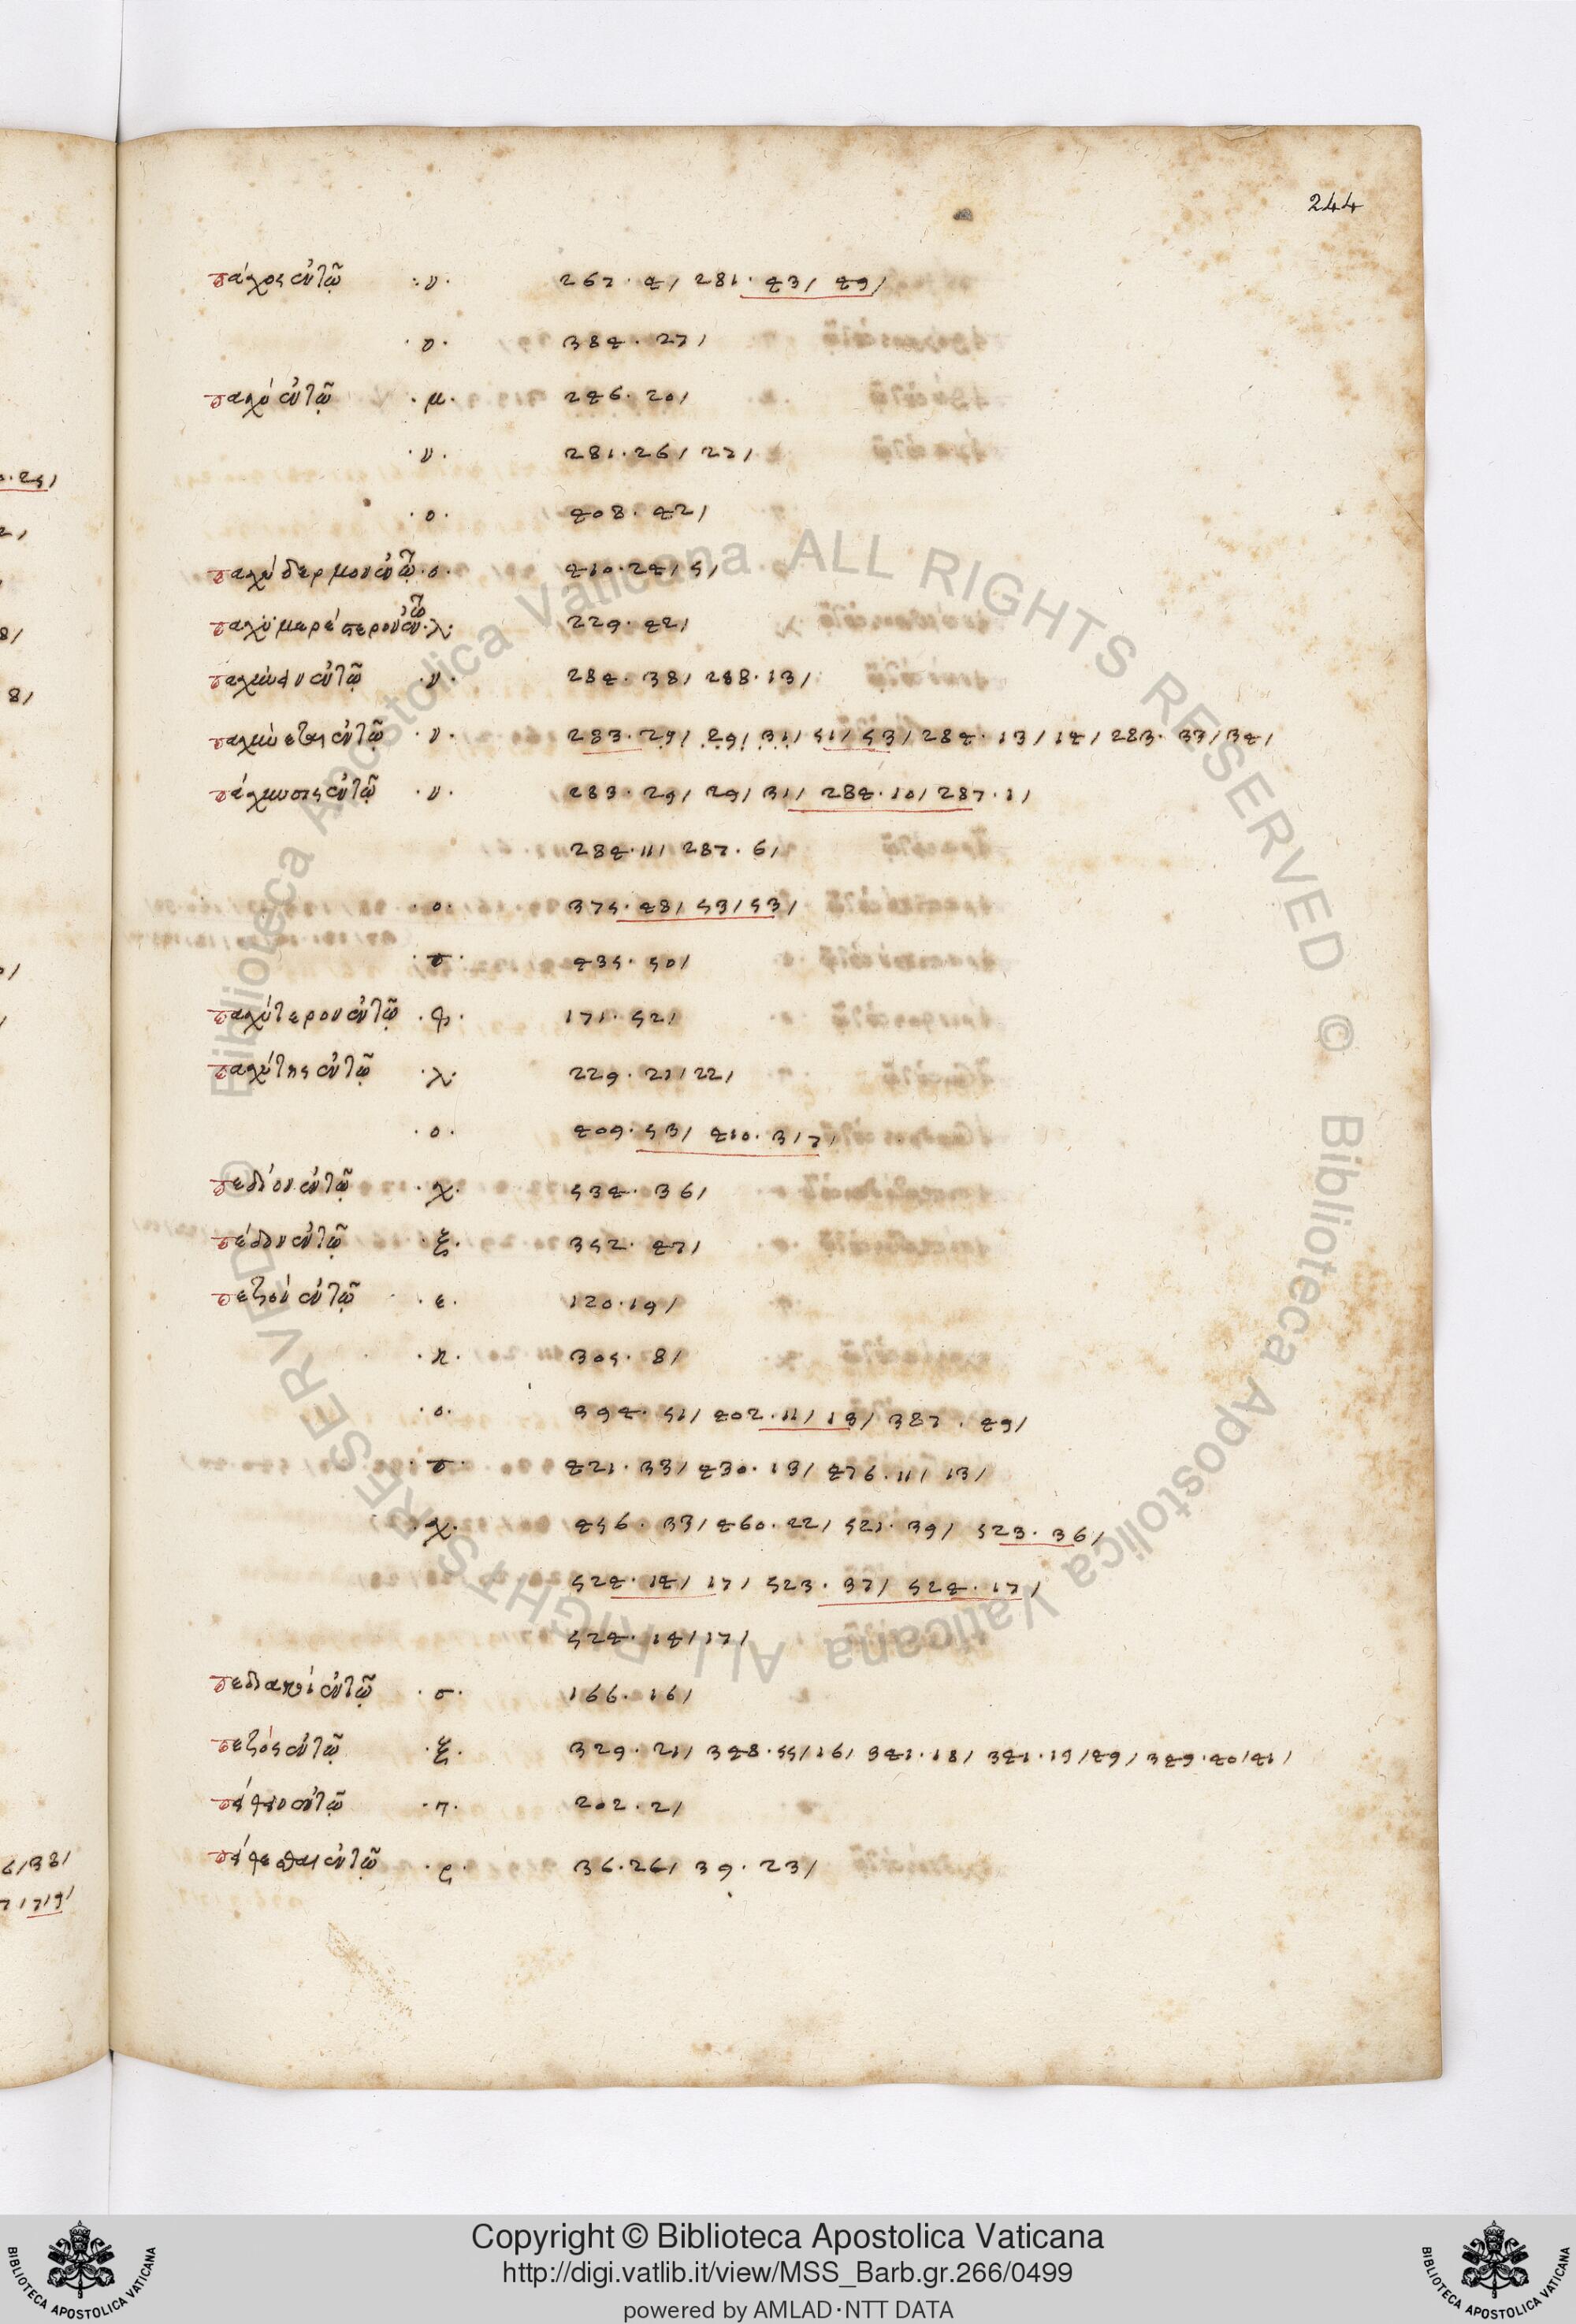 244
πάχος ἐν τῷ · ν · 267 · 4 / 281 · 43 / 49 /
· ο · 384 · 27 /
παχύ ἐν τῷ · μ · 246 · 20 /
· ν · 281 · 26 / 27 /
· ο · 408 · 42 /
παχύδερμον ἐν τῷ · ο · 410 · 24 / 5 /
παχυμερέστερον ἐν τῷ · λ · 229 · 42 /
ἐν τῷ · ν · 284 · 38 / 288 · 13 /
παχύνεται ἐν τῷ · ν · 283 · 29 / 29 / 31 / 51 / 53 / 284 · 13 / 14 / 283 · 33 / 34 /
πάχυνσις ἐν τῷ · ν · 283 · 29 / 29 / 31 / 284 · 10 / 287 · 1 /
284 · 11 / 287 · 6 /
· ο · 375 · 48 / 53 / 53 /
· π · 435 · 50 /
παχύτερον ἐν τῷ · φ · 171 · 52 /
παχύτης ἐν τῷ · λ · 229 · 21 / 22 /
· ο · 409 · 53 / 410 · 3 / 7 /
πεδίον ἐν τῷ · χ · 534 · 36 /
πέδον ἐν τῷ · ξ · 352 · 47 /
πεζόν ἐν τῷ · ε · 120 · 19 /
· κ · 305 · 8 /
· ο · 394 · 51 / 402 · 11 / 13 / 387 · 49 /
· π · 421 · 33 / 430 · 13 / 476 · 11 / 13 /
· χ · 456 · 33 / 460 · 22 / 521 · 39 / 523 · 36 /
524 · 14 / 17 / 523 · 37 / 524 · 17 /
524 · 14 / 17 /
ἐν τῷ · σ · 166 · 16 /
πεζός ἐν τῷ · ξ · 329 · 21 / 348 · 55 / 16 / 341 · 18 / 341 · 19 / 49 / 349 · 40 / 41 /
ἐν τῷ 202 · 2 /
ἐν τῷ · ς · 36 · 26 / 39 · 23 /
Biblioteca Apostolica Vaticana ALL RIGHTS RESERVED ©
Biblioteca Apostolica Vaticana ALL RIGHTS RESERVED ©
Copyright © Biblioteca Apostolica Vaticana
http://digi.vatlib.it/view/MSS_Barb.gr.266/0499
powered by AMLAD·NTT DATA
BIBLIOTECA APOSTOLICA VATICANA
BIBLIOTECA APOSTOLICA VATICANA